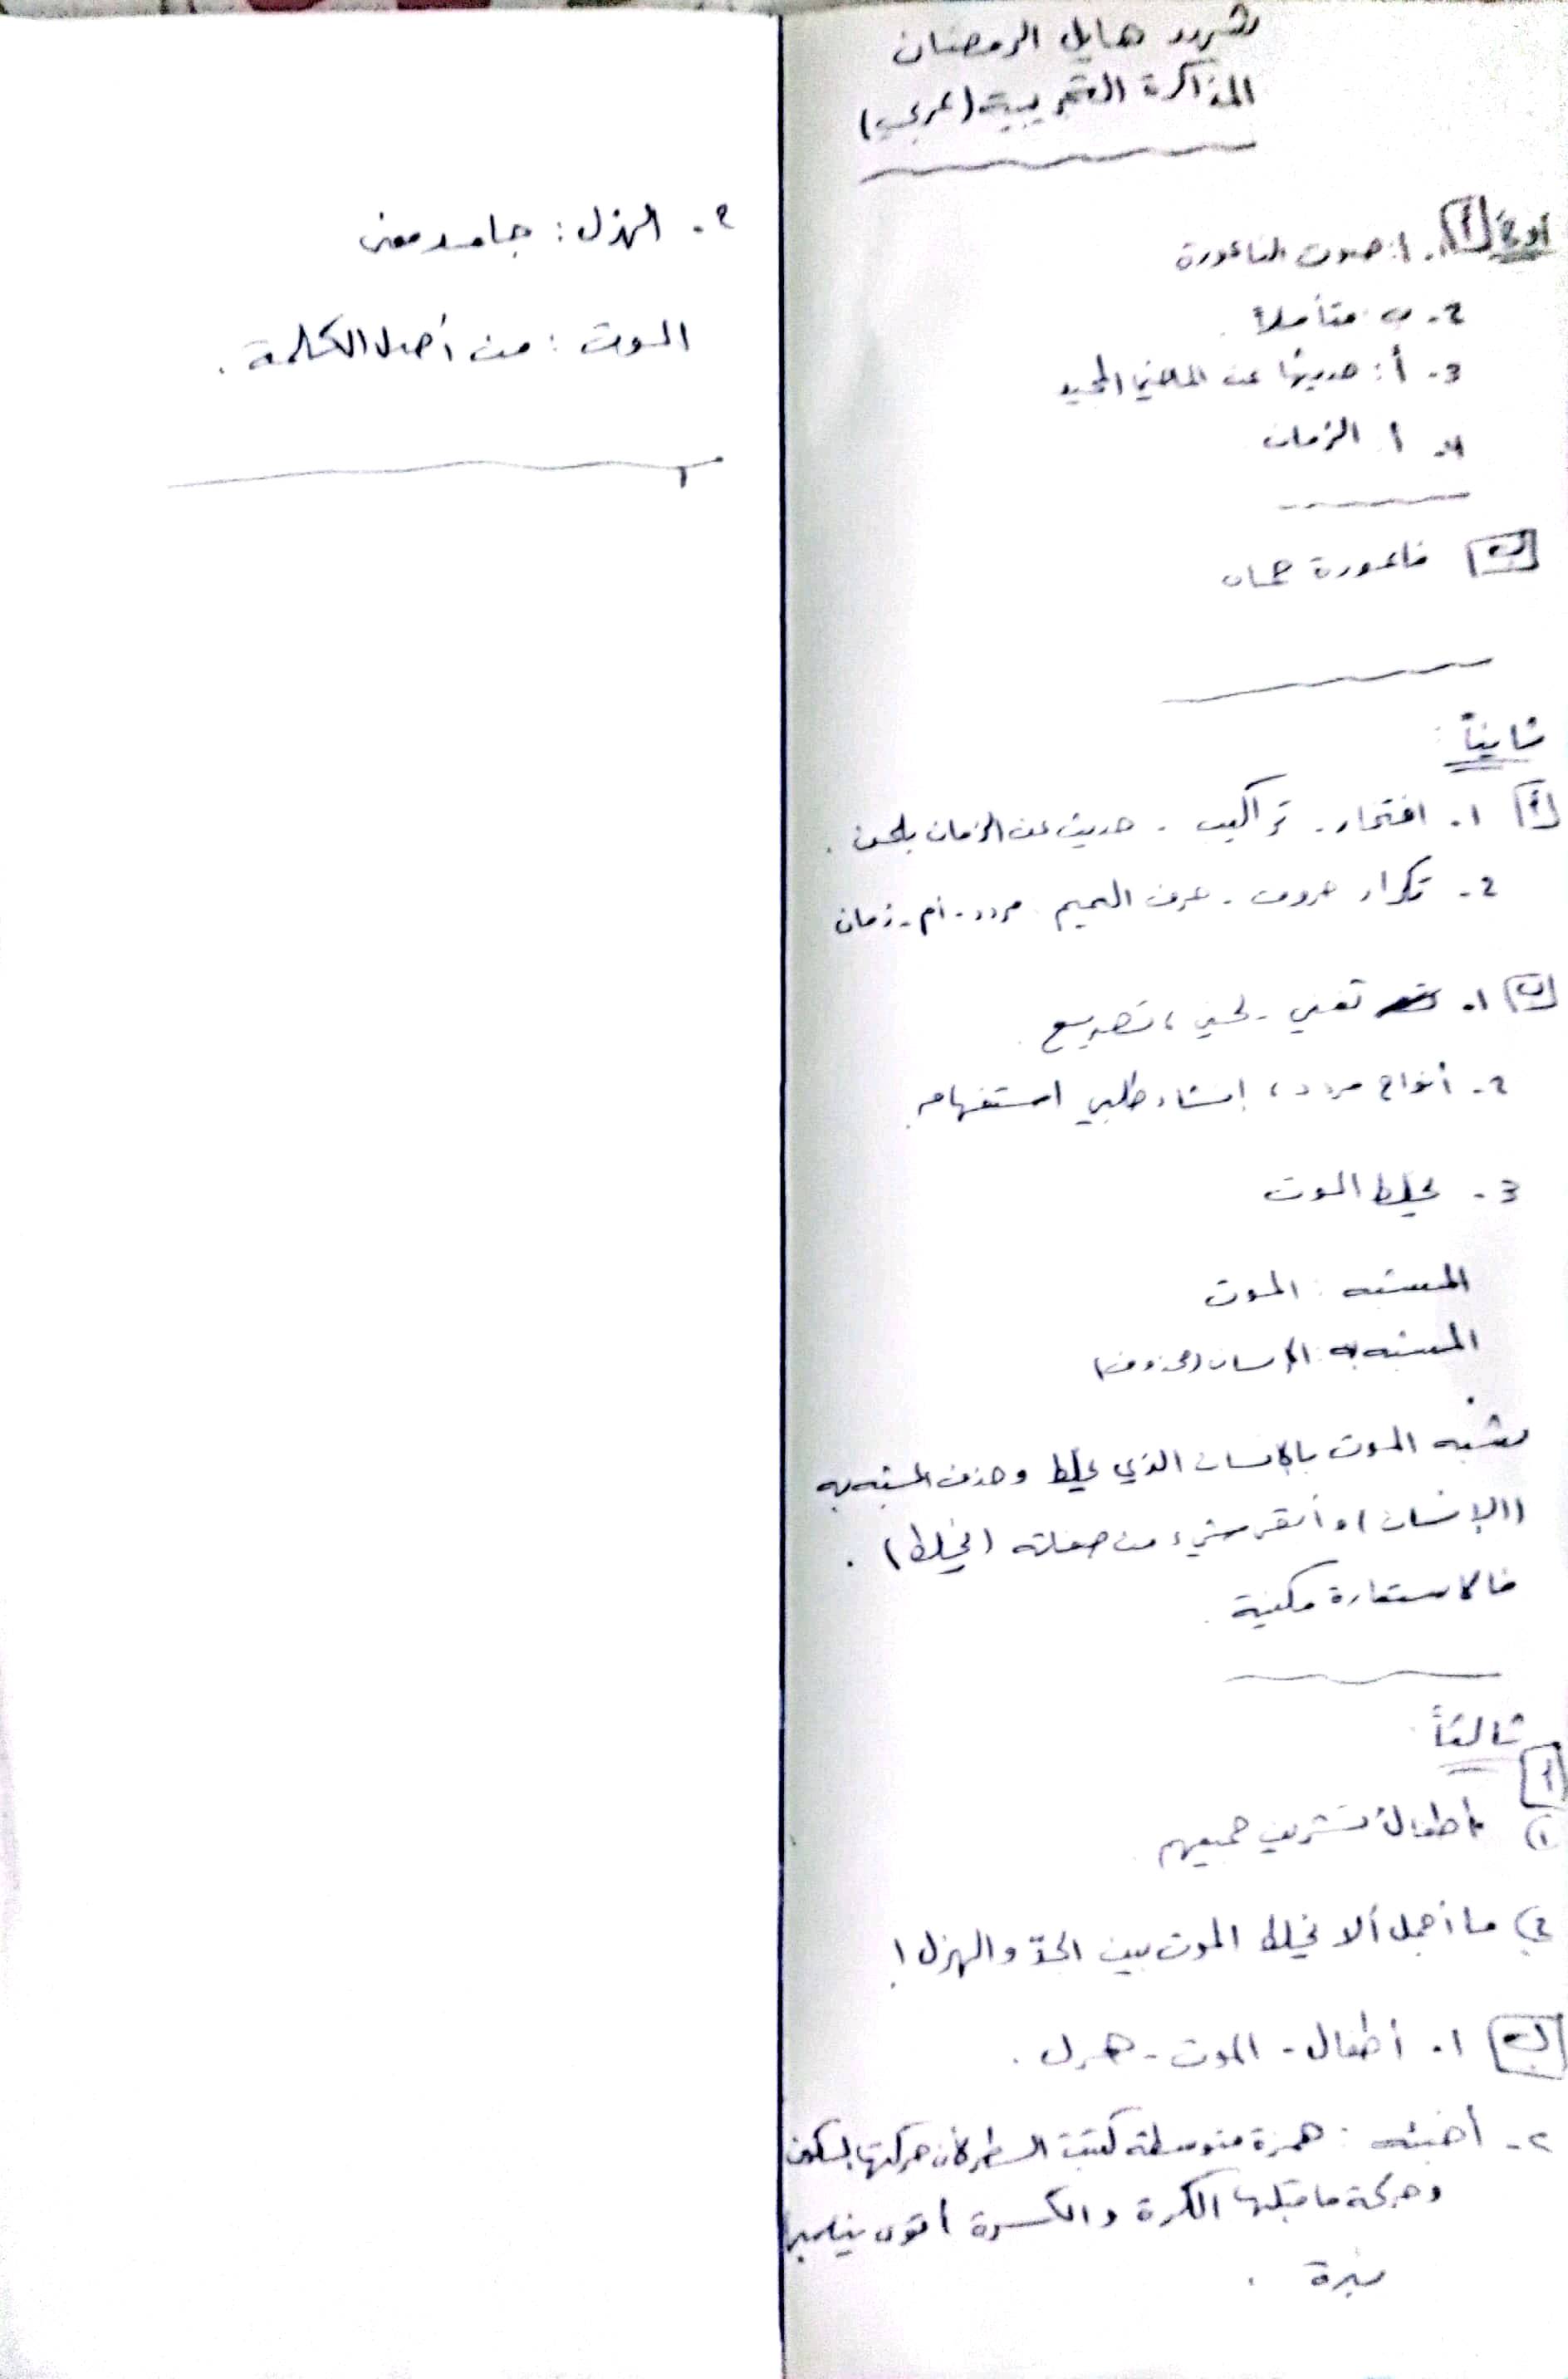 شهد هايل الرمضان
المذاكرة التجريبية (عربي)
أولاً أ 1. أ: صوت الناعورة
2- ب متأملاً
3- أ: حديثها عن الماضي المجيد
4- أ. الزمان
ب ناعورة حماه
ثانياً:
أ 1. افتخار - تراكيب - حديث عن الزمان بلحن.
2- تكرار حروف - حرف الميم مردد - أم - زمان
ب 1. تغني - لحني، تصريع.
2- أنواح مردد، إنشاء طلبي استفهام.
3- يخلط الموت
المشبه: الموت
المشبه به: الإنسان (محذوف)
شبه الموت بالإنسان الذي يخلط وحذف المشبه به
(الإنسان) وأبقى شيء من صفاته (يخلط).
فالاستعارة مكنية.
ثالثاً:
أ
1) أطفال تشرين جميعهم
2) ما أجمل ألا يخلط الموت بين الجدّ والهزل!
ب 1. أطفال - الموت - هزل.
2- أخبئه: همزة متوسطة كتبت السطر لأن حركتها السكون
وحركة ما قبلها الكسرة والكسرة أقوى يناسبها
نبرة.
2. الهزل: جامد معنى
الموت: من أصل الكلمة.